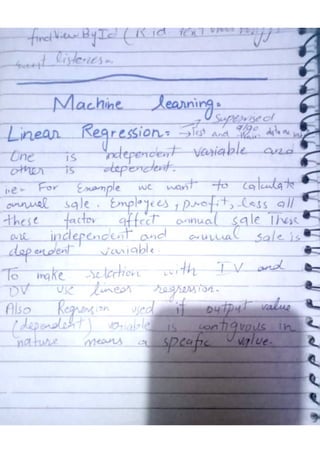 findViewById ( R.id
event listener.
Machine learning.
Supervised
Linear Regression. → test and train data
One is independent variable and
other is dependent.
i.e- For Example we want to calculate
annual sale. Employees, profit, loss all
these factor affect annual sale these
are independent and annual sale is
dependent variable.
To make selection with IV and
DV use linear regression.
Also Regression used if output value
(dependent) variable is contiguous in
nature means a specific value.